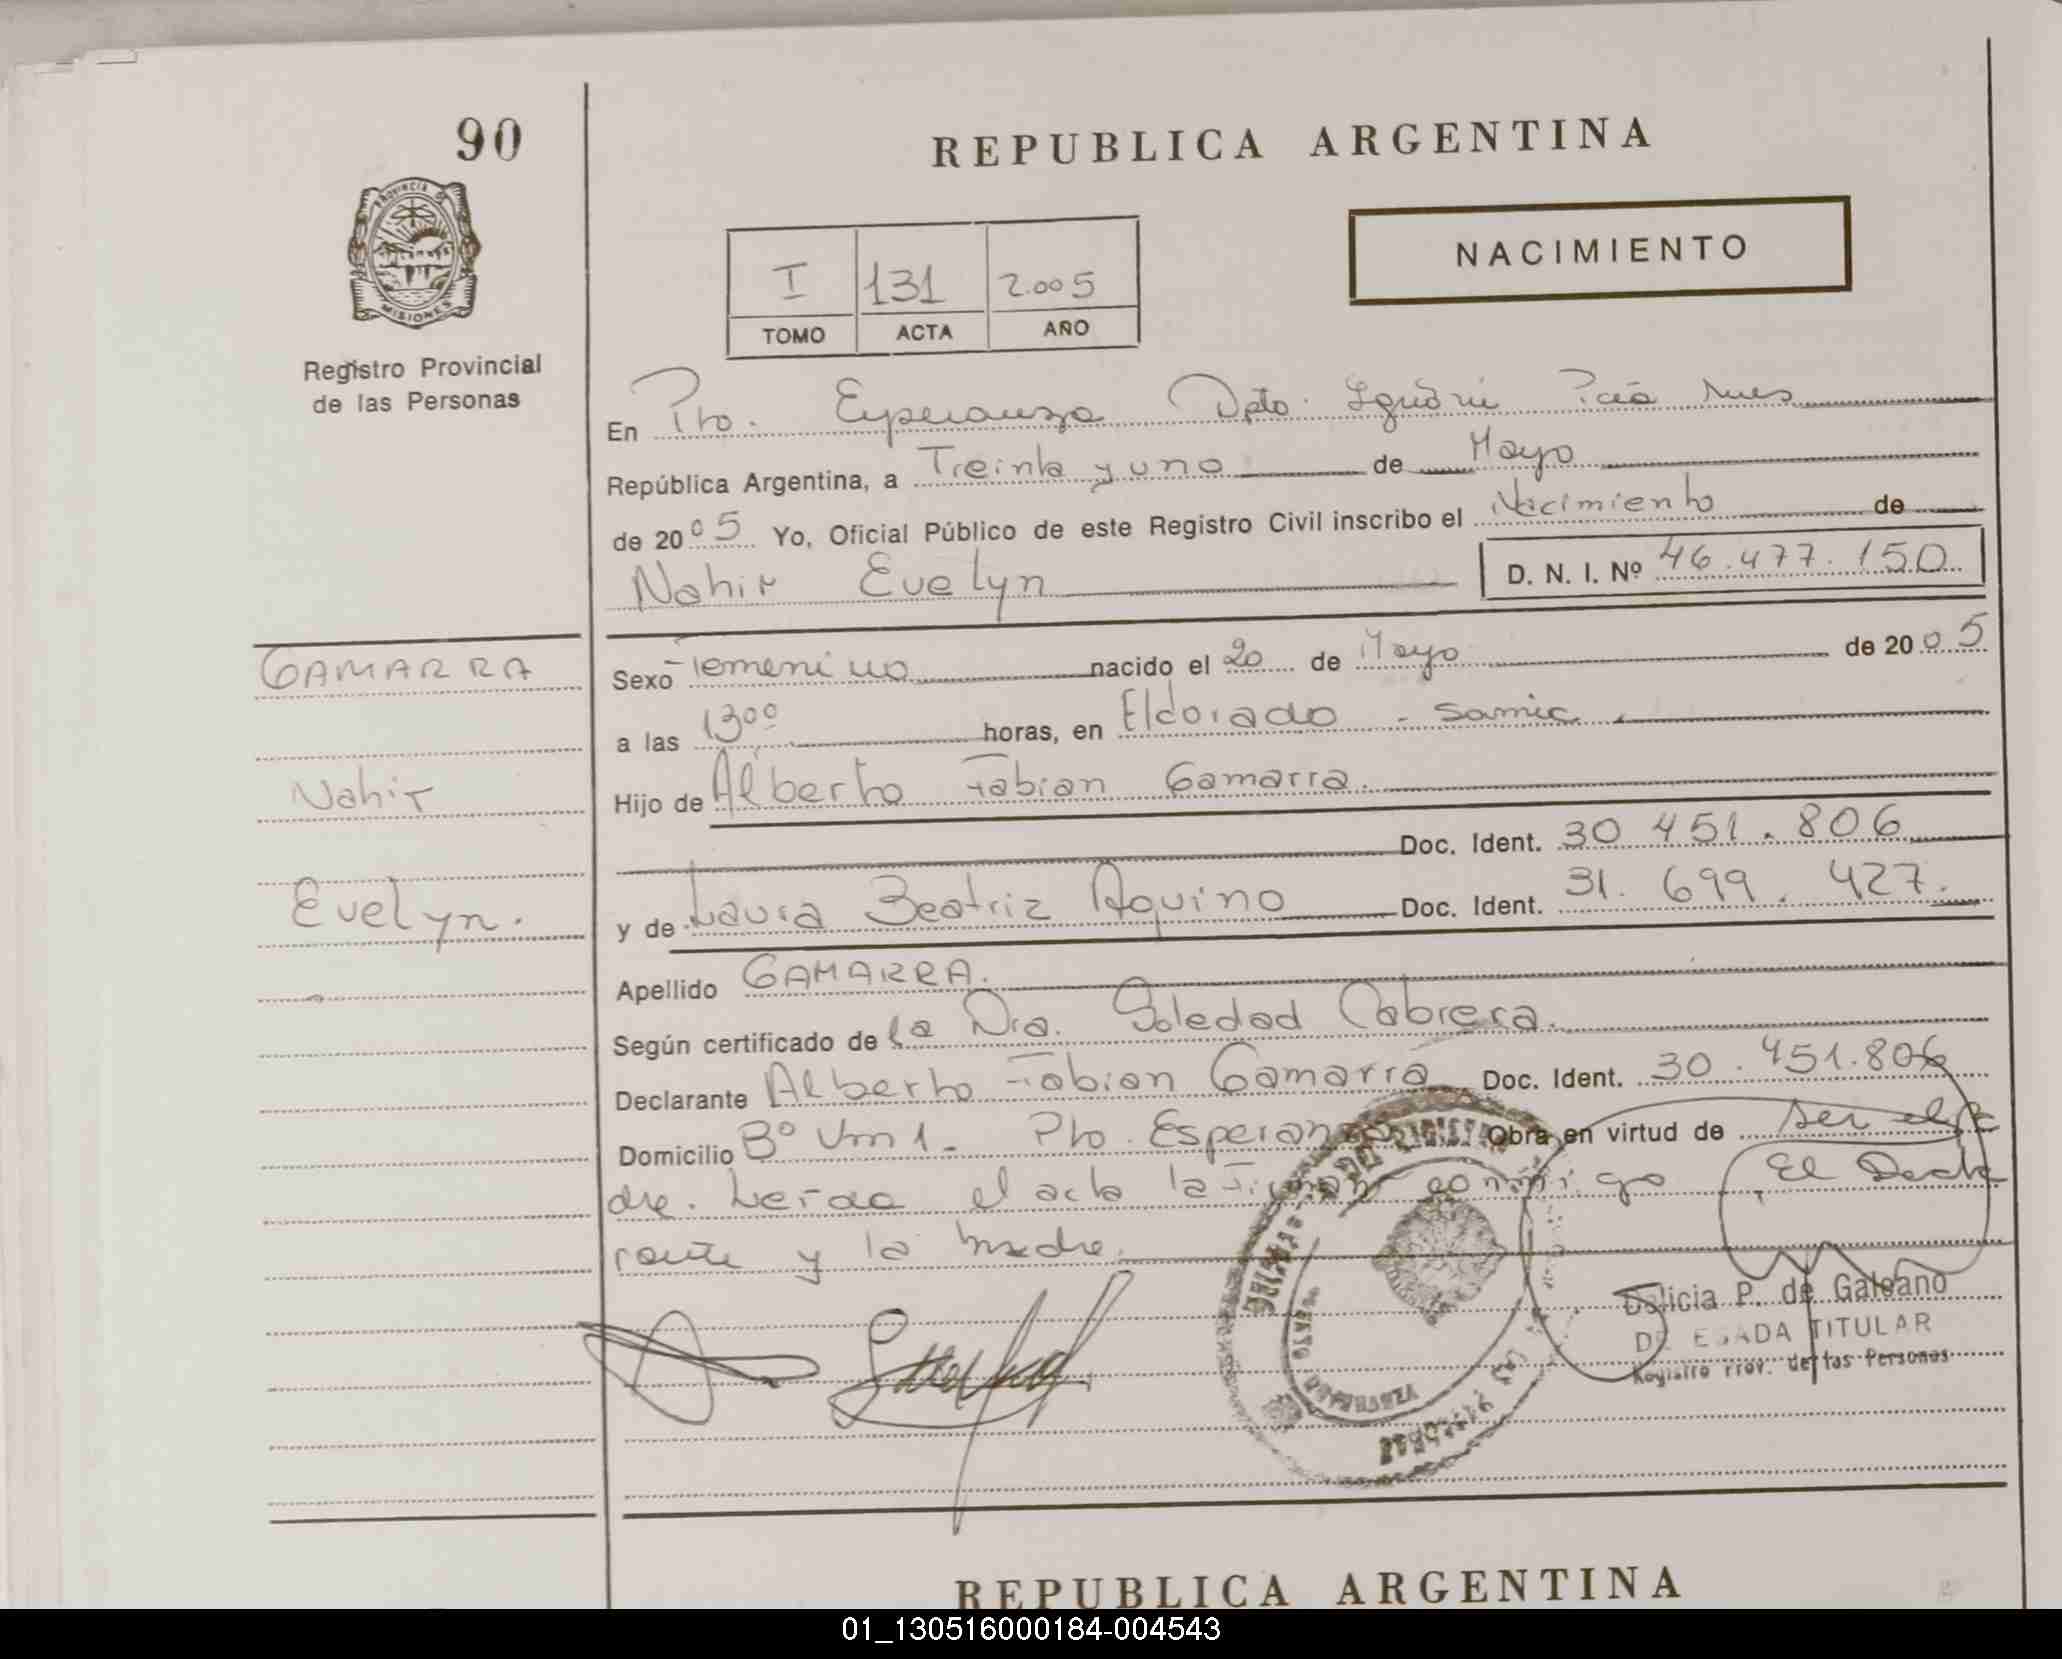 90
REPUBLICA ARGENTINA
PROVINCIA DE
MISIONES
Registro Provincial
de las Personas
NACIMIENTO
I 131 2.005
TOMO ACTA AÑO
En Pto. Esperanza Dpto. Iguazú Pcia Mnes
República Argentina, a Treinta y uno de Mayo
de 2005 Yo, Oficial Público de este Registro Civil inscribo el Nacimiento de
Nahir Evelyn D. N. I. Nº 46.477.150
GAMARRA
Nahir
Evelyn.
Sexo Femenino nacido el 20 de Mayo de 2005
a las 13⁰⁰ horas, en Eldorado - Samic.
Hijo de Alberto Fabian Gamarra.
Doc. Ident. 30 451.806
y de Laura Beatriz Aquino Doc. Ident. 31.699.427.
Apellido GAMARRA.
Según certificado de la Dra. Soledad Cabrera.
Declarante Alberto Fabian Gamarra Doc. Ident. 30.451.806
Domicilio Bº Vm 1- Pto. Esperanza Obra en virtud de ser el pa
dre. Leida el acta la Firman conmigo, El Decla
rante y la madre.
licia P. de Galeano
DELEGADA TITULAR
Registro Prov. de las Personas
PUERTO ESPERANZA
REPUBLICA ARGENTINA
01_130516000184-004543